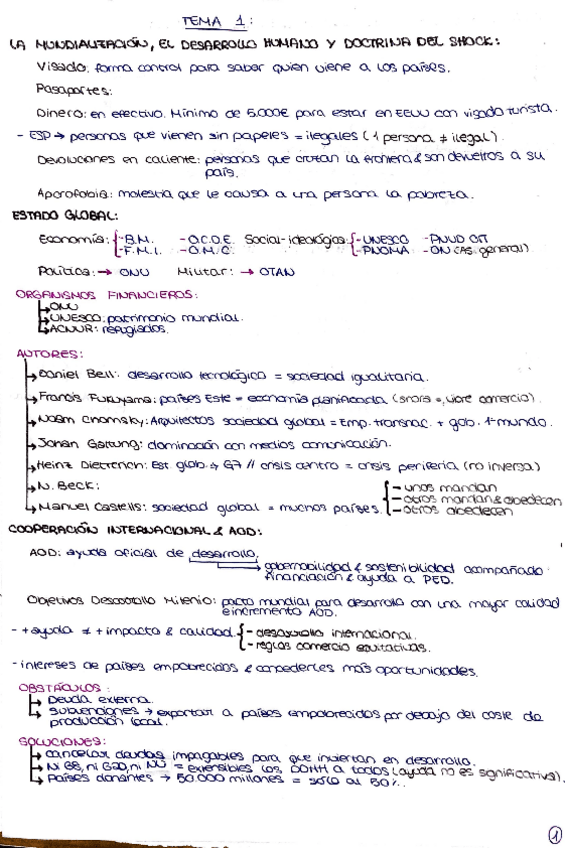 TEMA 1:
LA MUNDIALIZACIÓN, EL DESARROLLO HUMANO Y DOCTRINA DEL SHOCK:
Visado: forma control para saber quien viene a los países.
Pasaportes:
Dinero: en efectivo. Mínimo de 5.000€ para estar en EEUU con visado turista.
- ESP → personas que vienen sin papeles = ilegales (1 persona ≠ ilegal).
Devoluciones en caliente: personas que cruzan la frontera & son devueltos a su
país.
Aporofobia: molestia que le causa a una persona la pobreza.
ESTADO GLOBAL:
Economía: - B.M. - O.C.D.E. Social-ideológica: - UNESCO - PNUD OIT
- F.M.I. - O.M.C. - PNUMA - ON (AS. general)
Política: → ONU Militar: → OTAN
ORGANISMOS FINANCIEROS:
ONU
UNESCO: patrimonio mundial.
ACNUR: refugiados.
AUTORES:
Daniel Bell: desarrollo tecnológico = sociedad igualitaria.
Francis Fukuyama: países Este = economía planificada (ahora = libre comercio).
Noam Chomsky: Arquitectos sociedad global = Emp. transnac. + gob. 1º mundo.
Johan Galtung: dominación con medios comunicación.
Heinz Dieterich: Est. glob. → G7 // crisis centro = crisis periferia (no inversa)
N. Beck:
- unos mandan
Manuel Castells: sociedad global = muchos países. - otros mandan & obedecen
- otros obedecen
COOPERACIÓN INTERNACIONAL & AOD:
AOD: ayuda oficial de desarrollo.
gobernabilidad & sostenibilidad acompañado
financiación & ayuda a PED.
Objetivos Desarrollo Milenio: pacto mundial para desarrollo con una mayor calidad
e incremento AOD.
- + ayuda ≠ + impacto & calidad. - desarrollo internacional.
- reglas comercio equitativas.
- intereses de países empobrecidos & concederles más oportunidades.
OBSTÁCULOS:
Deuda externa.
Subvenciones → exportar a países empobrecidos por debajo del coste de
producción local.
SOLUCIONES:
Cancelar deudas impagables para que inviertan en desarrollo.
Ni G8, ni G20, ni NU = extensibles los DDHH a todos (ayuda no es significativa).
Países donantes → 50.000 millones = sólo al 50%.
1